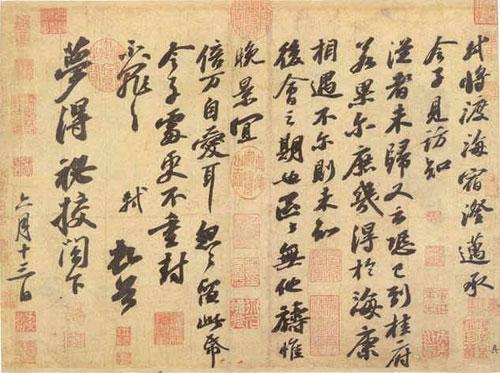 軾將渡海宿澄邁承
令子見訪知
從者未歸又云恐已到桂府
若果尔庶幾得於海康
相遇不尔則未知
後會之期也區〻無他禱惟
晚景宜
倍万自愛耳怱〻留此帋
令子處更不重封
不罪〻 軾頓首
夢得祕校閣下
六月十三日